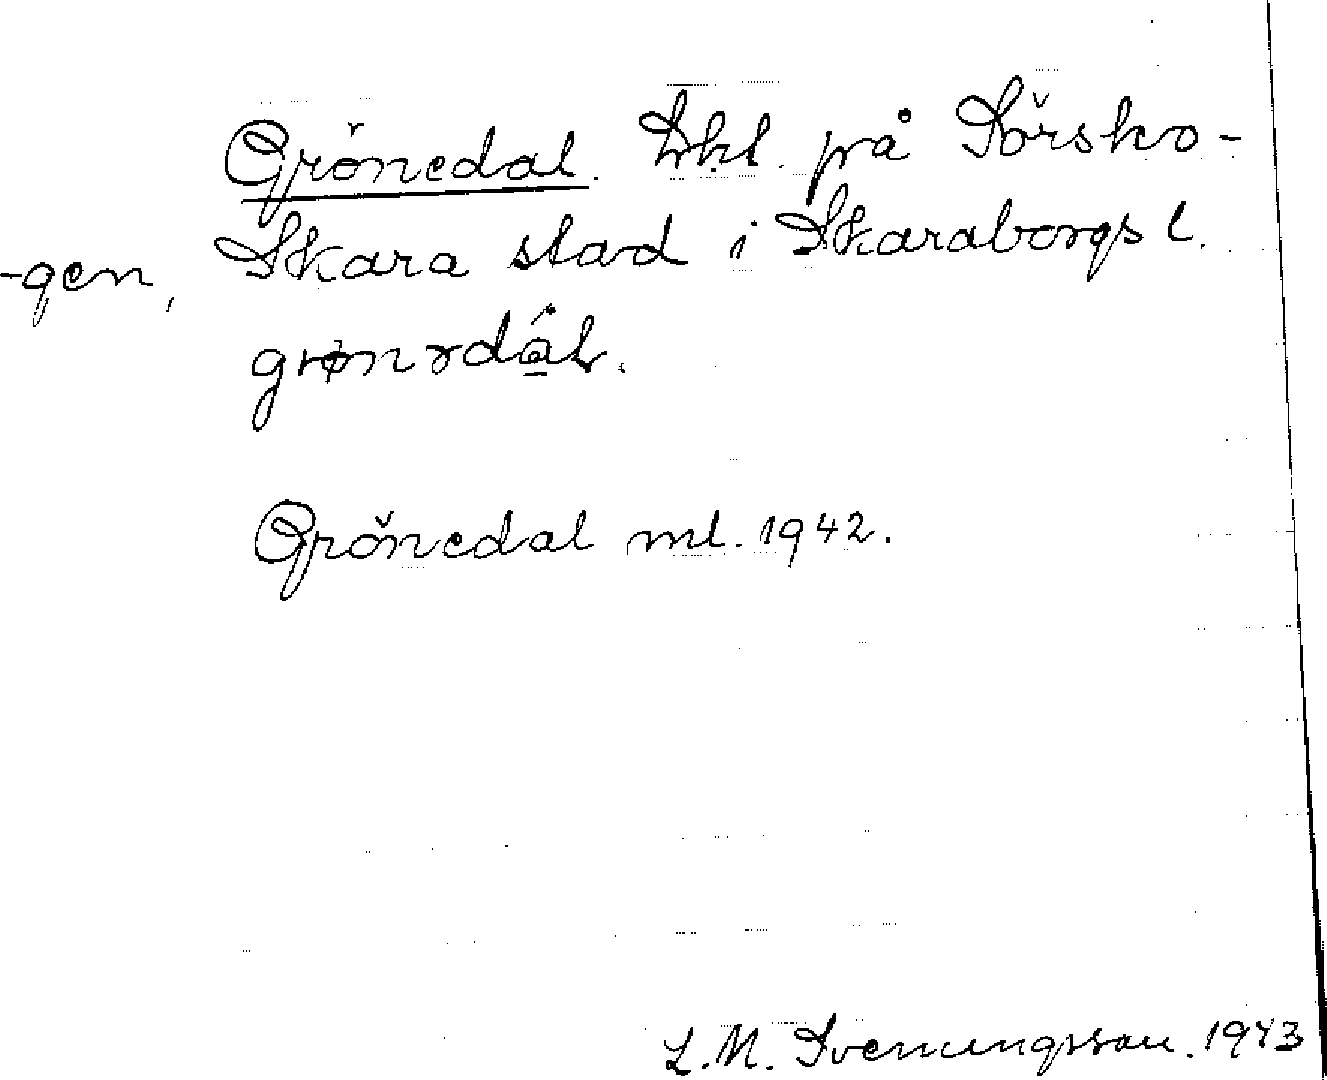 Grönedal. Lht. på Sörsko-
-gen, Skara stad i Skaraborgs l.
Grönedal ml. 1942.
L. M. Svenungsson. 1943